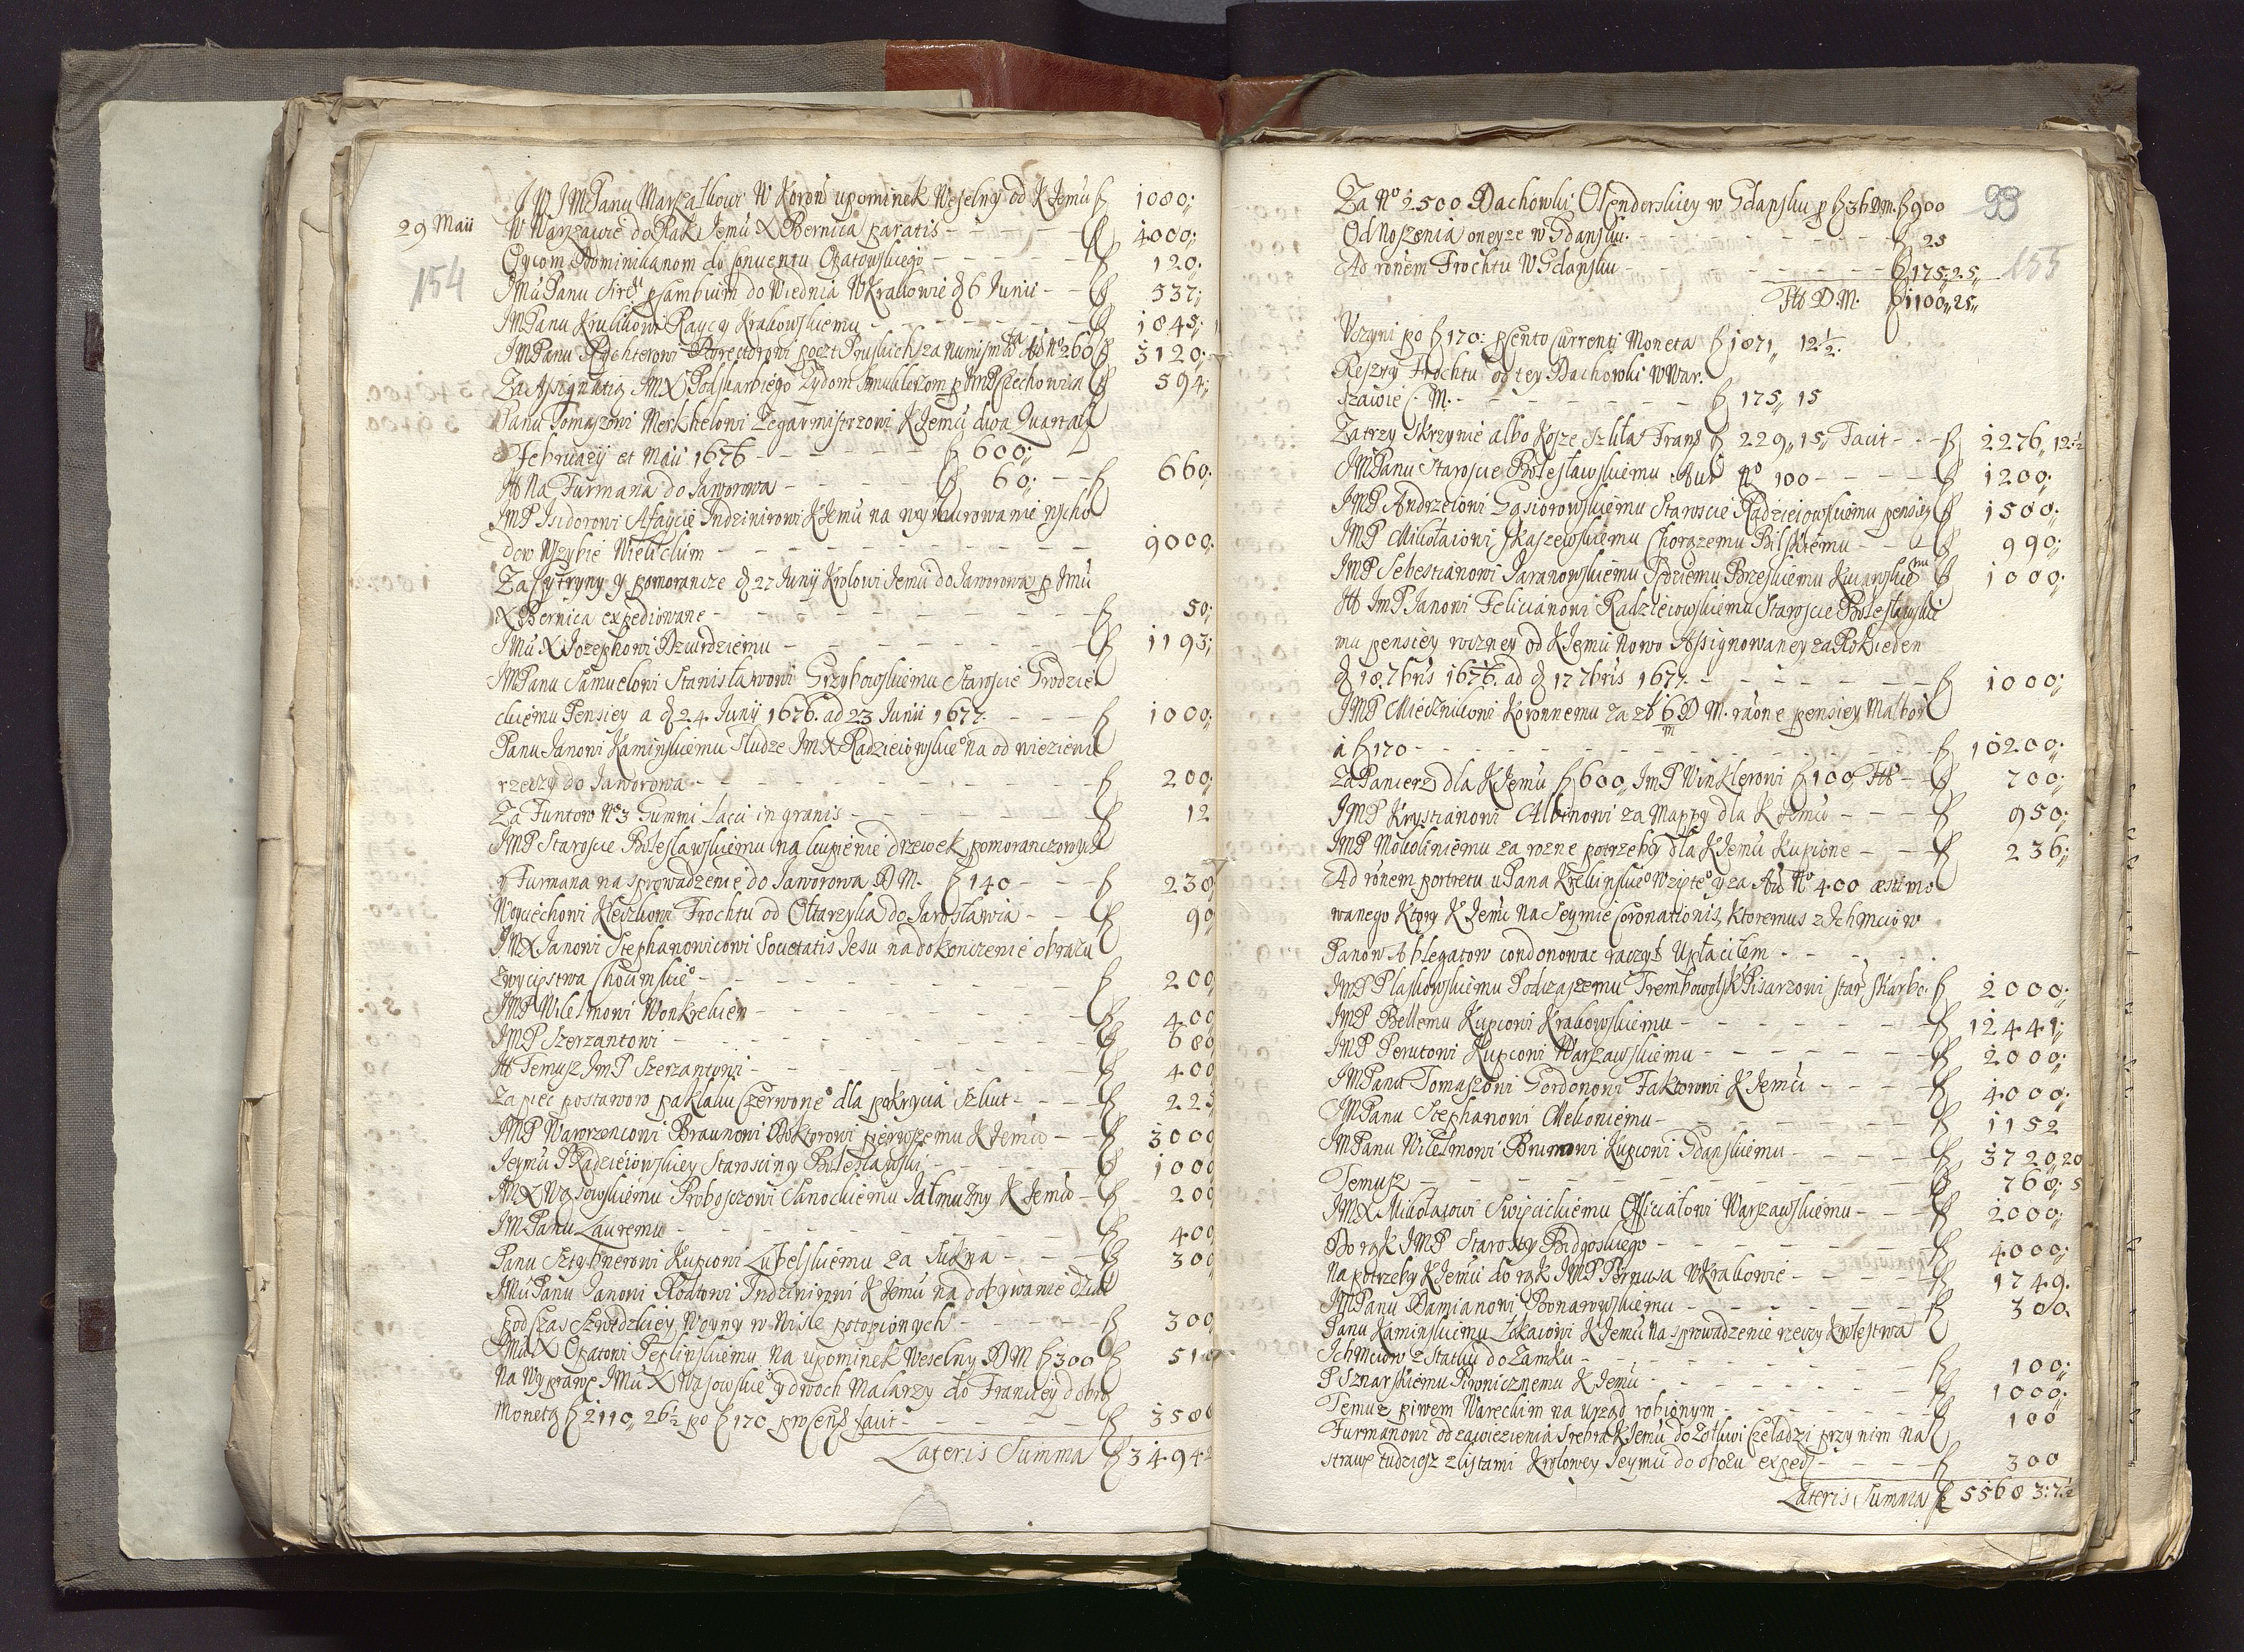 J W JMPanu Marszałkowi W Koroñ upominek Weselny od K Jemu f 1080:
29 Maii W Warszawie do Rąk Jemu X Bernica paratis f 4000:
154
Oycom Dominikanom do Conventu Opatowskiego f 120:
JMu Panu p Cambium do Wiednia W Krakowie d 6 Junii f 537:
JMPanu Krukikowi Raycy Krakowskiemu f 1845:
JMPanu Rychterowi Direktorowi poczt Pruskich za numismata Au Nº 260 f 3120:
Za Assignatią JMX Podskarbiego Zydom Smuklerzom p JMP Czechowica f 594:
Panu Tomaszowi Merkhelowi Zegarmistrzowi K Jemu dwa Quartały
February et Maii 1676 f 600:
Itt Na Furmana do Jaworowa f 60: f 660:
JMP Isidorowi Afaycie Indzinirowi K Jemu na wymurowanie wscho
dow W szybie Wielickim 9000:
Za Cytryny y pomorancze d 27 Junij Krolowi Jemu do Jaworowa p Jmu
X Bernica expediowane f 50:
JMu X Jozephowi Dzurdziemu f 1193:
JMPanu Samuelowi Stanisławowi Grzybowskiemu Staroscie Grodzie
ckiemu Pensiey a d 24 Junij 1676 ad 23 Junii 1677 f 1000:
Panu Janowi Kaminskiemu Słudze JMX Radzieiowskieº na od wiezienie
rzeczy do Jaworowa f 200:
Za Funtow Nº 3 Gummi Lacci in granis f 12
JMP Staroscie Bolesławskiemu na kupienie drzewek pomoranczowych
y Furmana na sprowadzenie do Jaworowa D M. f 140 f 238
Woyciechowi Kleczkowi Frochtu od Ołtarzyka do Jarosławia f 90
JMX Janowi Stephanowicowi Societatis Jesu na dokonczenie obrazu
zwycięstwa Chocimskieº f 200
JMP Wilelmowi Wonkrelien f 400
JMP Szerzantowi f 680
Itt Temusz JmP Szerzantowi f 400
Za pięc postawow paklaku Czerwoneº dla pokrycia Szkut f 225
JMP Wawrzencowi Braunowi Doktorowi pierwszemu K Jemu f 3000
Jeymu P Radzieiowskiey Starosciny Bolesławski f 1000
JMX Wąsowskiemu Proboszczowi Sanockiemu Jałmużny K Jemu f 200
JMPanu Lauremu f 400
Panu Sztybnerowi Kupcowi Lubelskiemu za Sukna f 300
JMuPanu Janowi Rodtowi Indzinirowi K Jemu na dobywanie dział
podczas Szwedzkiey Woyny w Wisle potopionych f 300
JMu X Opatowi Peplinskiemu na upominek Weselny D M f 300 f 510
Na Wyprawę JMu X Wąsowskieº y dwoch Malarzy do Franciey dobrą
Monetą f 2110,, 26½ po f 170 pro Cent facit f 3586
Lateris Summa f 34942
Za Nº 2500 Dachowki Olenderskiey w Gdansku p f 36 D.M. f 900
99
Od Noszenia oneyze w Gdansku f 25
155
Ad ronem Frochtu W Gdansku f 175,,25,,
Itt D.M. f 1100,,25,,
Uczyni po f 170: p Cento Currenti Moneta f 1871,, 12½.
Reszty Frochtu od tey Dachowki W War.
szawie C. M. f 175,, 15
Za trzy Skrzynie albo Kosze Szkła Franc f 229,, 15,, Facit f 2276,, 12½
JMPanu Staroscie Bolesławskiemu Aur Nº 100 f 1200:
JMP Andrzeiowi Gąsiorowskiemu Staroscie Radzieiowskiemu pensiey f 1500:
JMP Mikołaiowi Skaszewskiemu Chorązemu Bilskiemu f 990:
JMP Sebestianowi Jaranowskiemu Sędziemu Brzeskiemu Kuiawskiemu f 1000:
Itt JmP Janowi Felicianowi Radzieiowskiemu Staroscie Bolesławskie
mu pensiey roczney od K Jemu Nowo Assignowaney za Rok ieden
d 18. 7bris 1676. ad d 17 7bris 1677 f 1000:
JMP Miecznikowi Koronnemu za zł 6 m D M. raõne pensiey Malbor
a f 170 f 10200:
Za Pancerz dla K Jemu f 600,, JmP Winklerowi f 100 Itt f 700:
JMP Krystianowi Albinowi za Mappy dla K Jemu f 950:
JMP Mokoliniemu za rozne potrzeby dla K Jemu Kupione f 236:
Ad rônem portretu u Pana Krebinskieº Wzięteº y za Au Nº 400 æstimo
wanego Ktory K Jemu Na Seymie Coronationis, Ktoremus z Ich Mciow
Panow Ablegatow condonowac raczył Upłaciłem
JMP Plaskowskiemu Podczaszemu Trembowolsk Pisarzowi Skarbo. f 2000:
JMP Bellemu Kupcowi Krakowskiemu f 12441:
JMP Perutowi Kupcowi Warszawskiemu f 2000:
JMPanu Tomaszowi Gordonowi Faktorowi K Jemu f 4000:
JMPanu Stephanowi Mekoniemu f 1152
JMPanu Wilelmowi Brunowi Kupcowi Gdanskiemu f 3720,,20
Temusz f 768: 5
JMX Mikołaiowi Swięcickiemu Officiałowi Warszawskiemu f 2000:
Do rąk JMP Starosty Bidgoskiego f 4000:
Na potrzeby K Jemu do rąk JMP Pernusa W Krakowie f 1749.
JMPanu Damianowi Bonarowskiemu f 300
Panu Kaminskiemu Lokaiowi K Jemu Na sprowadzenie rzeczy Krolestwa
Ich Mciow z Statku do Zamku f 100:
P Sznarskiemu Piwnicznemu K Jemu f 1000:
Temuz piwem Wareckim na Urząd robionym f 100
Furmanowi od zawiezienia Srebra K Jemu do Zołkwi Czeladzi przy nim na
strawę tudziesz z listami Krolowey Jeymu do obozu exped f 300
Lateris Summa f 55683:7½